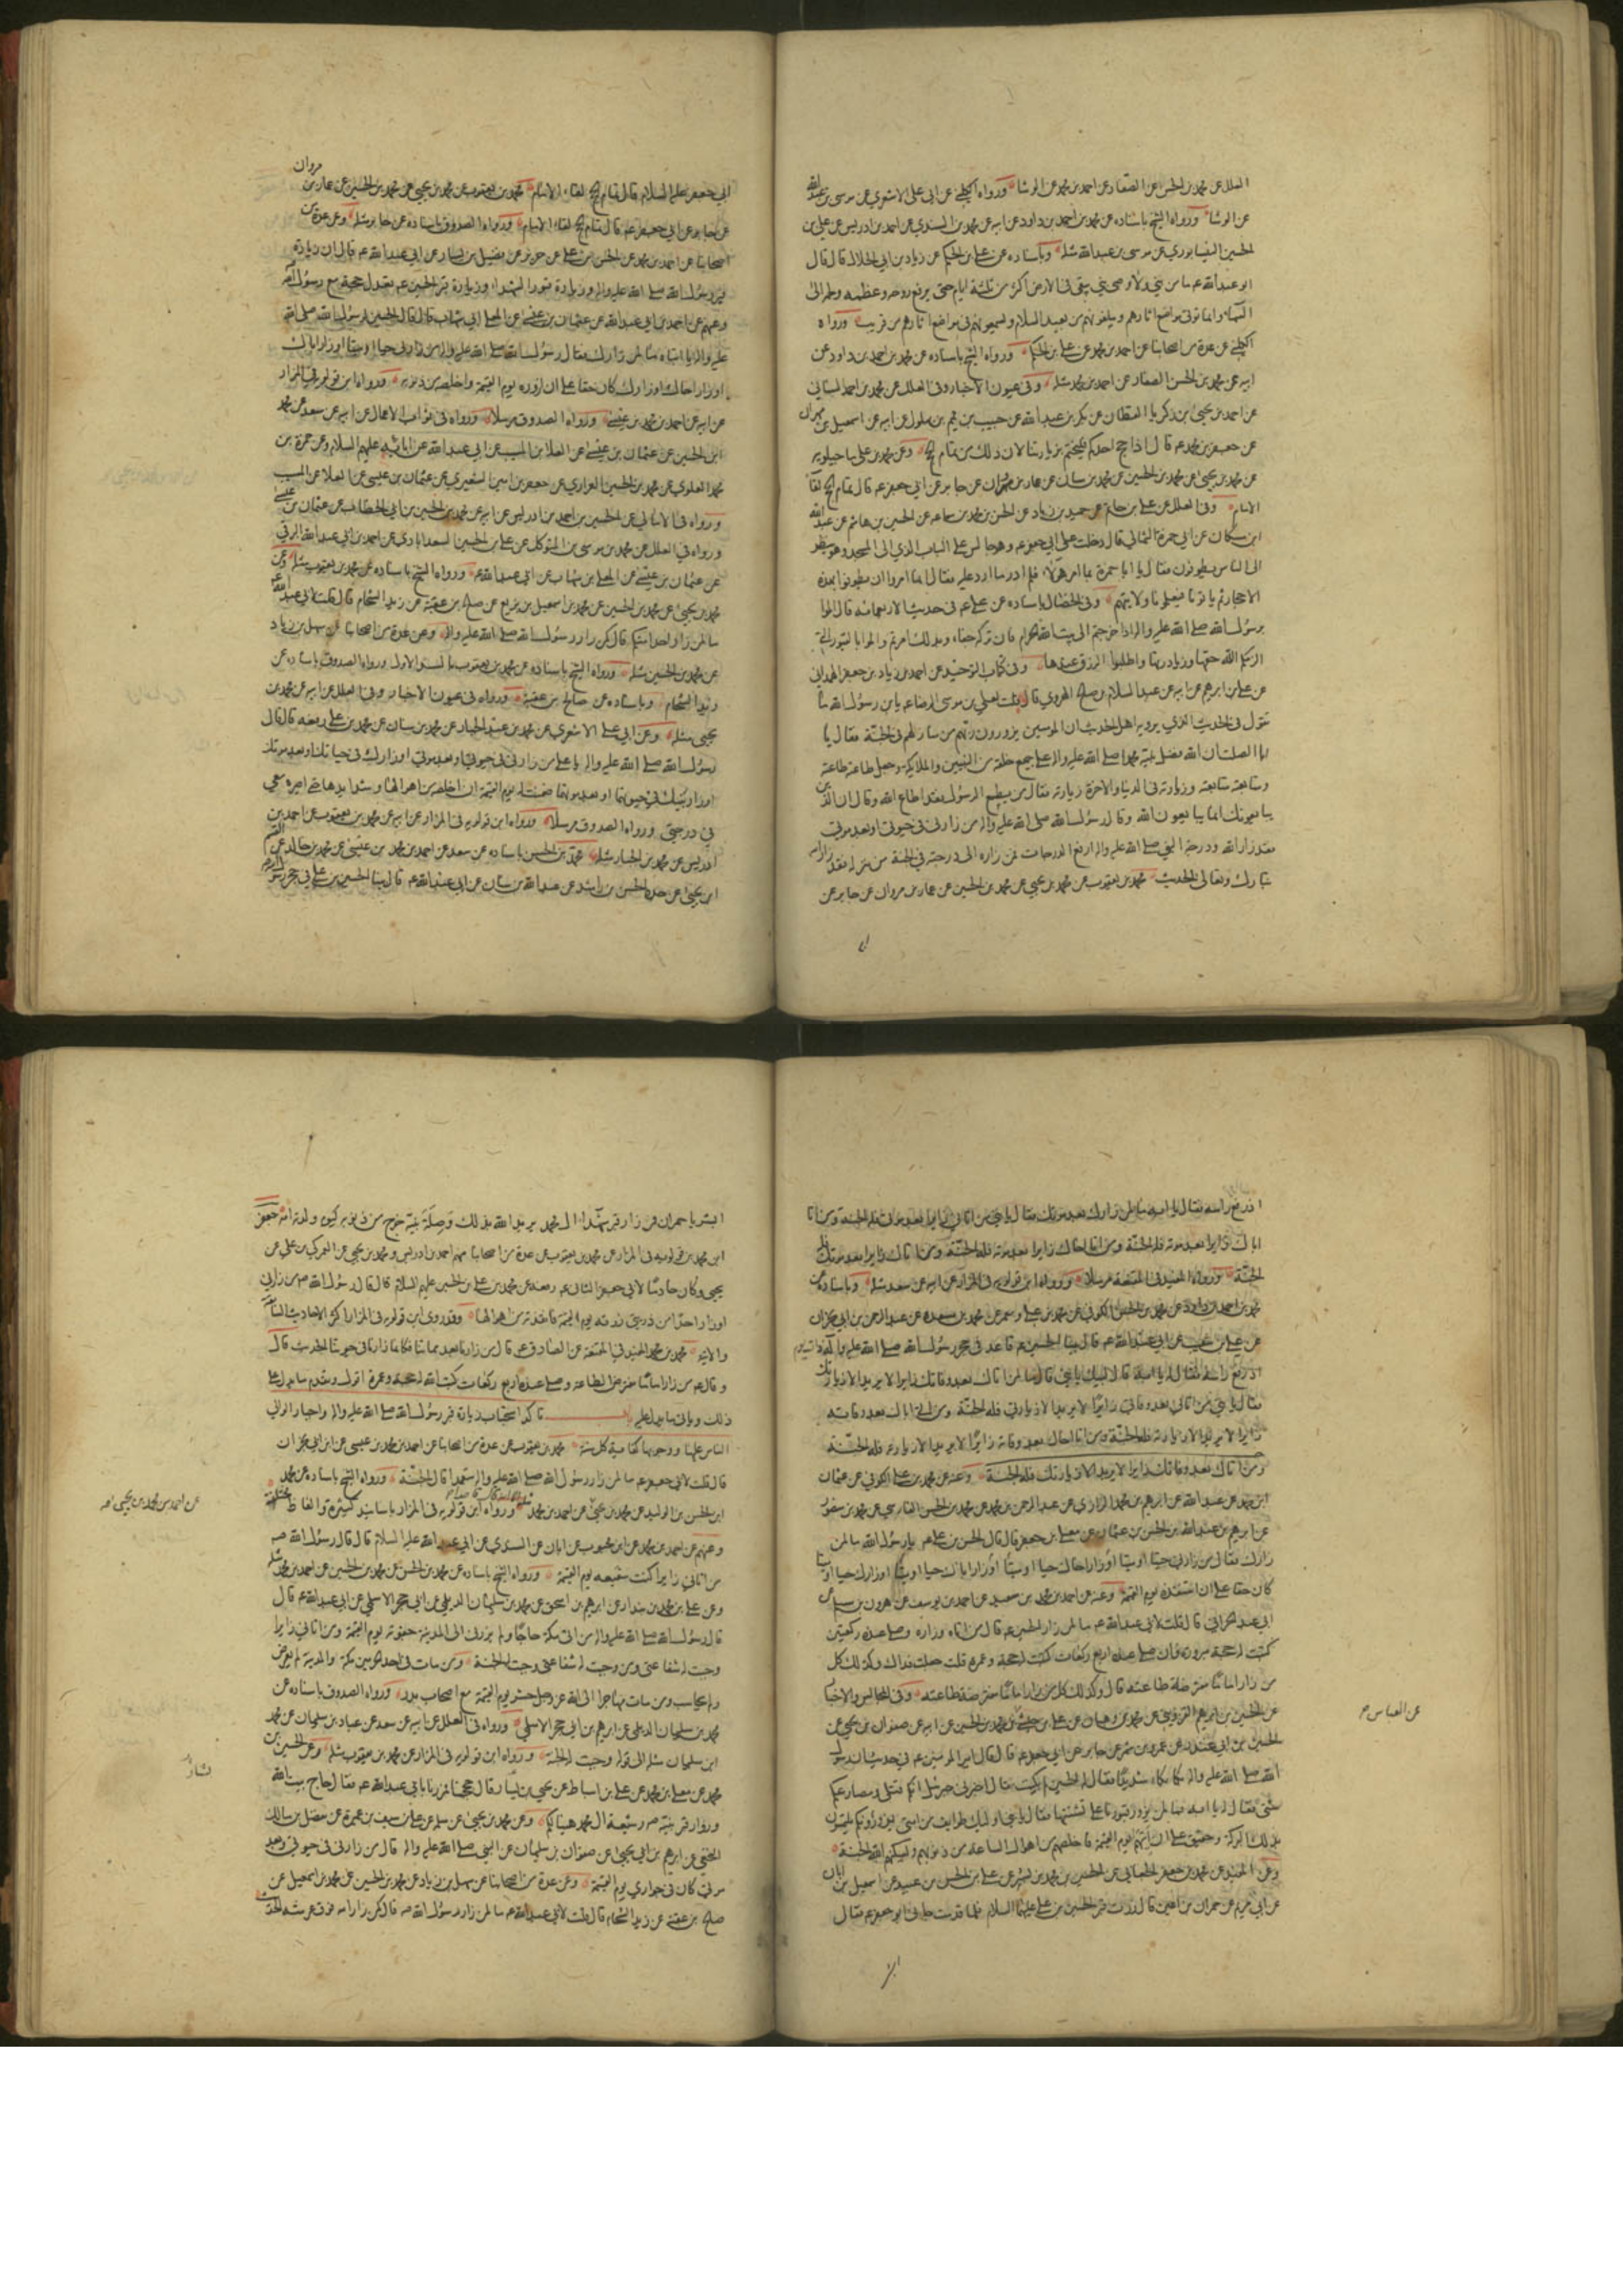 العلل عن محمد بن الحسن عن الصفار عن احمد بن محمد عن الوشا ورواه الكليني عن ابي علي الاشعري عن موسى بن عبدالله
عن الوشا ورواه الشيخ باسناده عن محمد بن احمد بن داود عن ابيه عن محمد بن السندي عن احمد بن ادريس عن علي بن
الحسين النيسابوري عن موسى بن عبدالله مثله وباسناده عن علي بن الحكم عن زياد بن ابي الحلال قال قال
ابو عبدالله ع ما من نبي ولا وصي نبي يبقى في الارض اكثر من ثلثة ايام حتى يرفع روحه وعظمه ولحمه الى
السماء وانما توتى مواضع اثارهم ويبلغونهم من بعيد السلام ويسمعونهم في مواضع اثارهم من قريب ورواه
الكليني عن عدة من اصحابنا عن احمد بن محمد عن علي بن الحكم ورواه الشيخ باسناده عن محمد بن احمد بن داود عن
ابيه عن محمد بن الحسن الصفار عن احمد بن محمد مثله وفي عيون الاخبار وفي العلل عن محمد بن احمد السناني
عن احمد بن يحيى بن زكريا القطان عن بكر بن عبدالله عن حبيب عن تميم بن بهلول عن ابيه عن اسمعيل بن مهران
عن جعفر بن محمد ع قال اذا حج احدكم فليختم بزيارتنا لان ذلك من تمام الحج وعن محمد بن علي ماجيلويه
عن محمد بن يحيى عن محمد بن الحسين عن محمد بن سنان عن عمار بن مروان عن جابر عن ابي جعفر ع قال تمام الحج لقاء
الامام وفي العلل عن علي بن حاتم عن حميد بن زياد عن الحسن بن محمد بن سماعه عن الحسين بن هاشم عن عبدالله
ابن مسكان عن ابي حمزة الثمالي قال دخلت على ابي جعفر ع وهو جالس على الباب الذي الى المسجد وهو ينظر
الى الناس يطوفون فقال يا ابا حمزة بما امر هولاء فلم ادر ما ارد عليه فقال انما امروا ان يطوفوا بهذه
الاحجار ثم ياتونا فيعلمونا ولايتهم وفي الخصال باسناده عن علي ع في حديث الاربعمائه قال الموا
برسول الله صلى الله عليه واله اذا خرجتم الى بيت الله الحرام فان تركه جفاء وبذلك امرتم والموا بالقبور التي
الزمكم الله حقها وزيارتها واطلبوا الرزق عندها وفي كتاب التوحيد عن احمد بن زياد بن جعفر الهمداني
عن علي بن ابرهيم عن ابيه عن عبد السلام بن صالح الهروي قال قلت لعلي بن موسى الرضا ع يابن رسول الله ما
تقول في الحديث الذي يرويه اهل الحديث ان المومنين يزورون ربهم من منازلهم في الجنة فقال يا
ابا الصلت ان الله فضل نبيه محمدا صلى الله عليه واله على جميع خلقه من النبيين والملايكة وجعل طاعته طاعته
ومتابعته متابعته وزيارته في الدنيا والاخرة زيارته فقال من يطع الرسول فقد اطاع الله وقال ان الذين
يبايعونك انما يبايعون الله وقال رسول الله صلى الله عليه واله من زارني في حيوتي او بعد موتي
فقد زار الله ودرجة النبي صلى الله عليه واله ارفع الدرجات فمن زاره الى درجته في الجنة من منزله فقد زار الله
تبارك وتعالى الحديث محمد بن يعقوب عن محمد بن يحيى عن محمد بن الحسين عن عمار بن مروان عن جابر عن
ابي جعفر عليه السلام قال تمام الحج لقاء الامام محمد بن يعقوب عن محمد بن يحيى عن محمد بن الحسين عن عمار بن مروان
عن جابر عن ابي جعفر ع قال تمام الحج لقاء الامام ورواه الصدوق باسناده عن جابر مثله وعن عدة من
اصحابنا عن احمد بن محمد عن الحسن بن علي عن حريز عن فضيل بن يسار عن ابي عبدالله ع قال ان زيارة
قبر رسول الله صلى الله عليه واله وزيارة قبور الشهداء وزيارة قبر الحسين ع تعدل حجة مع رسول الله
وعنهم عن احمد بن ابي عبدالله عن عثمان بن عيسى عن المعلى ابي شهاب قال قال الحسين لرسول الله صلى الله
عليه واله يا ابتاه ما لمن زارك فقال رسول الله صلى الله عليه واله من زارني حيا او ميتا او زار اباك
او زار اخاك او زارك كان حقا علي ان ازوره يوم القيمة واخلصه من ذنوبه ورواه ابن قولويه في المزار
عن ابيه عن احمد بن محمد بن عيسى ورواه الصدوق مرسلا ورواه في ثواب الاعمال عن ابيه عن سعد عن محمد
ابن الحسين عن عثمان بن عيسى عن العلا بن المسيب عن ابي عبدالله عن ابائه عليهم السلام وعن حمزة بن
محمد العلوي عن محمد بن الحسين الفزاري عن جعفر بن عثمان بن عيسى عن العلا عن المسيب
ورواه في الامالي عن الحسين بن احمد بن ادريس عن ابيه عن محمد بن الحسين بن ابي الخطاب عن عثمان بن عيسى
ورواه في العلل عن محمد بن موسى بن المتوكل عن علي بن الحسين السعدابادي عن احمد بن ابي عبدالله البرقي
عن عثمان بن عيسى عن المعلى بن شهاب عن ابي عبدالله ع ورواه الشيخ باسناده عن محمد بن يعقوب مثله وعن
محمد بن يحيى عن محمد بن الحسين عن محمد بن اسمعيل بن بزيع عن صالح بن عقبة عن زيد الشحام قال قلت لابي عبدالله
ما لمن زار احدا منكم قال كمن زار رسول الله صلى الله عليه واله وعن عدة من اصحابنا عن سهل بن زياد
عن محمد بن الحسين مثله ورواه الشيخ باسناده عن محمد بن يعقوب بالسند الاول ورواه الصدوق باسناده عن
زيد الشحام وباسناده عن صالح بن عقبة ورواه في عيون الاخبار وفي العلل عن ابيه عن محمد بن
يحيى مثله وعن ابي علي الاشعري عن محمد بن عبد الجبار عن محمد بن سنان عن محمد بن علي رفعه قال قال
رسول الله صلى الله عليه واله يا علي من زارني في حيوتي او بعد موتي او زارك في حياتك او بعد موتك
او زار ابنيك في حيوتهما او بعد موتهما ضمنت له يوم القيمة ان اخلصه من اهوالها وشدايدها حتى اصيره معي
في درجتي ورواه الصدوق مرسلا ورواه ابن قولويه في المزار عن ابيه عن محمد بن يعقوب عن احمد بن
ادريس عن محمد بن عبد الجبار مثله محمد بن الحسن باسناده عن سعد عن احمد بن محمد بن عيسى عن محمد بن خالد عن القسم
ابن يحيى عن جده الحسن بن راشد عن عبدالله بن سنان عن ابي عبدالله ع قال بينا الحسين بن علي في حجر رسول
اذ رفع راسه فقال يا ابه ما لمن زارك بعد موتك فقال يا بني من اتاني زايرا بعد موتي فله الجنة ومن اتا
اباك زايرا بعد موته فله الجنة ومن اتا اخاك زايرا بعد موته فله الجنة ومن اتاك زايرا بعد موتك فله
الجنة ورواه المفيد في المقنعة مرسلا ورواه ابن قولويه في المزار عن ابيه عن سعد مثله وباسناده عن
محمد بن احمد بن داود عن محمد بن الحسن الكوفي عن محمد بن علي بن معمر عن محمد بن مسعده عن عبد الرحمن بن ابي نجران
عن علي بن شعيب عن ابي عبدالله ع قال بينا الحسين ع قاعد في حجر رسول الله صلى الله عليه واله ذات يوم
اذ رفع راسه فقال له يا ابه قال لبيك يا بني قال ما لمن اتاك بعد وفاتك زايرا لا يريد الا زيارتك
فقال يا بني من اتاني بعد وفاتي زايرا لا يريد الا زيارتي فله الجنة ومن اتى اباك بعد وفاته
زايرا لا يريد الا زيارته فله الجنة ومن اتا اخاك بعد وفاته زايرا لا يريد الا زيارته فله الجنة
ومن اتاك بعد وفاتك زايرا لا يريد الا زيارتك فله الجنة وعنه عن محمد بن علي الكوفي عن عثمان
ابن محمد عن عبدالله عن ابرهيم بن محمد الرازي عن عبد الرحمن بن محمد عن محمد بن الحسن الفارسي عن محمد بن منصور
عن ابرهيم بن عبدالله بن الحسن بن عثمان عن معلى بن جعفر قال قال الحسن بن علي ع يا رسول الله ما لمن
زارك فقال من زارني حيا او ميتا او زار اباك حيا او ميتا او زار اخاك حيا او ميتا او زارك حيا او ميتا
كان حقا علي ان استنقذه يوم القيمة وعنه عن احمد بن محمد بن سعيد عن احمد بن يوسف عن هرون بن مسلم عن
ابي عبد الحراني قال قلت لابي عبدالله ع ما لمن زار الحسين ع قال من اتاه وزاره وصلى عنده ركعتين
كتبت له حجة مبرورة فان صلى عنده اربع ركعات كتبت له حجة وعمرة قلت جعلت فداك وكذلك كل
من زار اماما مفترضة طاعته قال وكذلك كل من زار اماما مفترضة طاعته وفي المجالس والاخبار
عن الحسين بن ابرهيم القزويني عن محمد بن وهبان عن علي بن حبشي عن محمد بن الحسين عن ابيه عن صفوان بن يحيى عن
الحسين بن ابي غندر عن عمرو بن شمر عن جابر عن ابي جعفر ع قال قال امير المومنين ع في حديث ان رسول
الله صلى الله عليه واله بكا بكاء شديدا فقال له الحسين لم بكيت فقال اخبرني جبرئيل انكم قتلى ومصارعكم
شتى فقال له يا ابه فما لمن يزور قبورنا على تشتتها فقال يا بني اوليك طوايف من امتي يزورونكم يلتمسون
بذلك البركة وحقيق علي ان اتيهم يوم القيمة فاخلصهم من اهوال الساعة من ذنوبهم ويسكنهم الله الجنة
وعن المفيد عن محمد بن جعفر الجعابي عن الحسين بن محمد بن بشر عن علي بن الحسن بن عبيد عن اسمعيل بن ابان
عن ابي مريم عن حمران بن اعين قال زرت قبر الحسين بن علي عليهما السلام فلما قدمت جاءني ابو جعفر ع فقال
عن العباس ع
ابشر يا حمران فمن زار قبر شهداء ال محمد يريد الله بذلك وصلة نبيه خرج من ذنوبه كيوم ولدته امه جعفر
ابن محمد بن قولويه في المزار عن محمد بن يعقوب عن عدة من اصحابنا منهم احمد بن ادريس ومحمد بن يحيى عن العمركي بن علي عن
يحيى وكان خادما لابي جعفر الثاني ع رفعه عن محمد بن علي بن الحسين عليهم السلام قال قال رسول الله ص من زارني
او زار احدا من ذريتي زرته يوم القيمة فانقذته من اهوالها وقد روى ابن قولويه في المزار اكثر الاحاديث السابقة
والاتية محمد بن محمد المفيد في المقنعة عن الصادق ع قال من زارنا بعد مماتنا فكانما زارنا في حيوتنا الحديث قال
وقال ع من زار اماما مفترض الطاعة وصلى عنده اربع ركعات كتب الله له حجة وعمرة اقول وتقدم ما يدل على
ذلك وياتي ما يدل عليه باب تاكد استحباب زيارة قبر رسول الله صلى الله عليه واله واجبار الوالي
الناس عليها ووجوبها كفاية كل سنة محمد بن يعقوب عن عدة من اصحابنا عن احمد بن محمد بن عيسى عن ابن ابي نجران
قال قلت لابي جعفر ع ما لمن زار رسول الله صلى الله عليه واله متعمدا قال الجنة ورواه الشيخ باسناده عن محمد
ابن الحسن بن الوليد عن محمد بن يحيى عن احمد بن محمد ورواه ابن قولويه في المزار باسانيد كثيرة والفاظ مختلفة
عن احمد بن محمد بن يحيى
وعنهم عن احمد بن محمد عن ابن محبوب عن ابان عن السدوسي عن ابي عبدالله عليه السلام قال قال رسول الله ص
من اتاني زايرا كنت شفيعه يوم القيمة ورواه الشيخ باسناده عن محمد بن الحسن عن محمد بن الحسين عن احمد بن محمد مثله
وعن علي بن محمد بن بندار عن ابرهيم بن اسحق عن محمد بن سليمان الديلمي عن ابي حجر الاسلمي عن ابي عبدالله ع قال
قال رسول الله صلى الله عليه واله من اتى مكة حاجا ولم يزرني الى المدينة جفوته يوم القيمة ومن اتاني زايرا
وجبت له شفاعتي ومن وجبت له شفاعتي وجبت له الجنة ومن مات في احد الحرمين مكة والمدينة لم يعرض
ولم يحاسب ومن مات مهاجرا الى الله عز وجل حشر يوم القيمة مع اصحاب بدر ورواه الصدوق باسناده عن
محمد بن سليمان الديلمي عن ابرهيم بن ابي حجر الاسلمي ورواه في العلل عن ابيه عن سعد عن عباد بن سليمان عن محمد
ابن سليمان مثله الى قوله وجبت له الجنة ورواه ابن قولويه في المزار عن محمد بن يعقوب مثله وعن الحسين بن
محمد عن معلى بن محمد عن علي بن اسباط عن يحيى بن يسار قال حججنا فمررنا بابي عبدالله ع فقال حاج بيت الله
وزوار قبر نبيه ص وشيعة ال محمد هنيئا لكم وعن محمد بن يحيى عن سلمة عن علي بن سيف بن عميرة عن مفضل بن مالك
النخعي عن ابرهيم بن ابي يحيى عن صفوان بن سليمان عن النبي صلى الله عليه واله قال من زارني في حيوتي وبعد
موتي كان في جواري يوم القيمة وعن عدة من اصحابنا عن سهل بن زياد عن محمد بن الحسين عن محمد بن اسمعيل عن
صالح بن عقبة عن زيد الشحام قال قلت لابي عبدالله ع ما لمن زار رسول الله ص قال كمن زار الله فوق عرشه الحديث